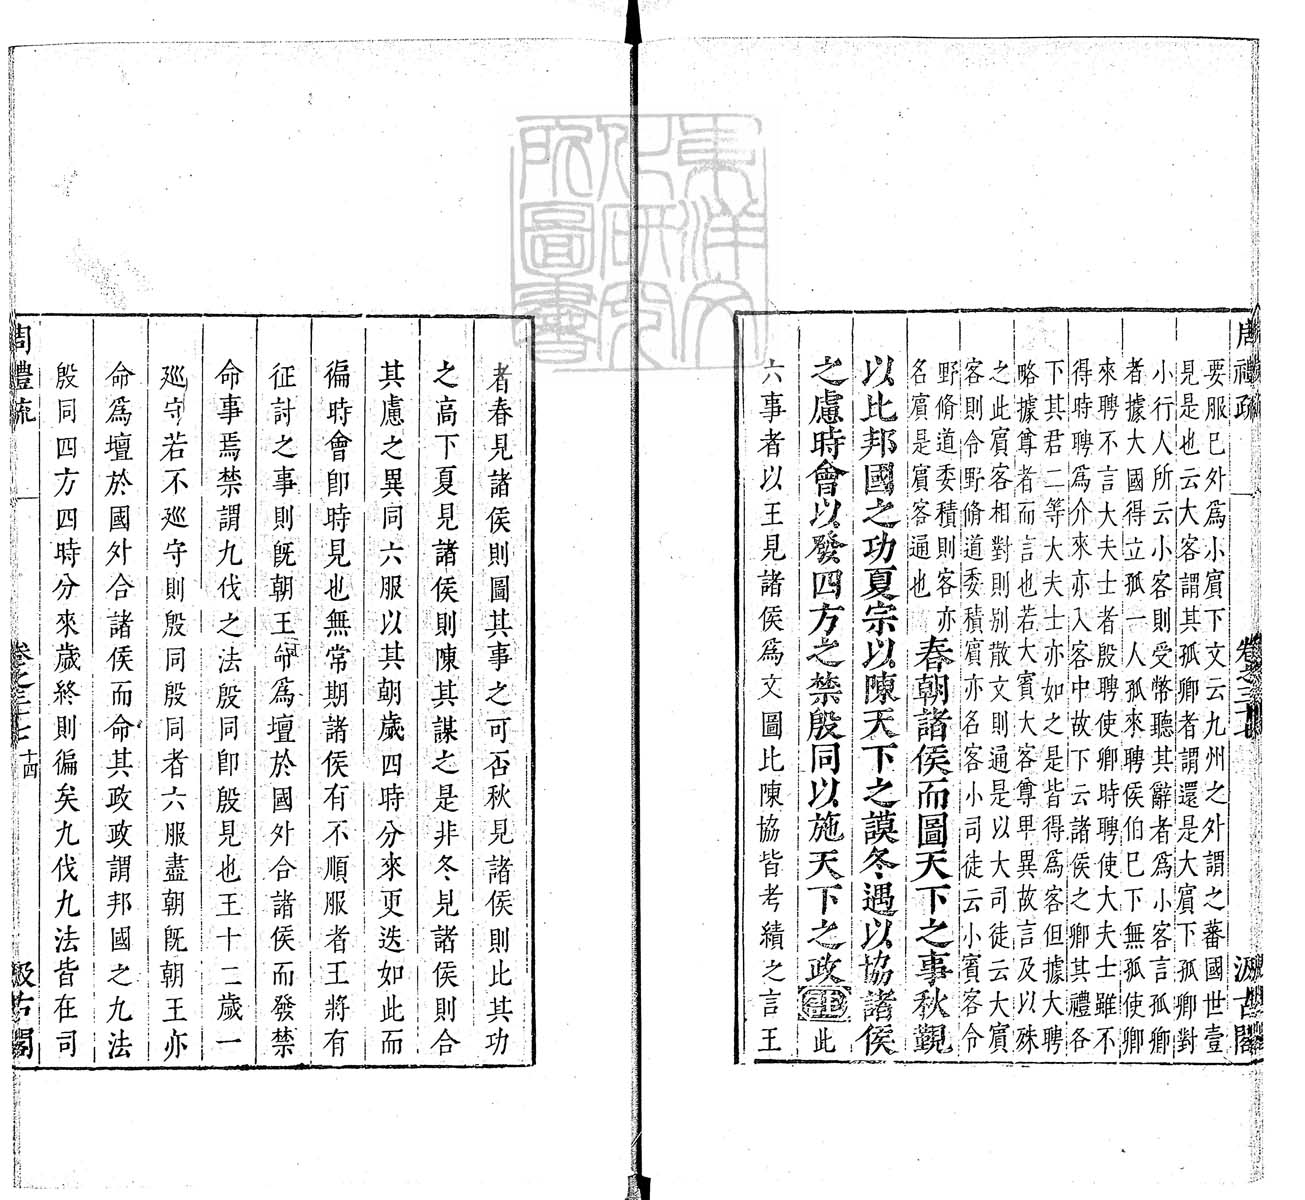 周禮疏 卷之三十七 汲古閣
要服巳外爲小賓下文云九州之外謂之蕃國世壹
見是也云大客謂其孤卿者謂還是大賓下孤卿對
小行人所云小客則受幣聽其辭者爲小客言孤卿
者據大國得立孤一人孤來聘侯伯巳下無孤使卿
來聘不言大夫士者殷聘使卿時聘使大夫士雖不
得時聘爲介來亦入客中故下云諸侯之卿其禮各
下其君二等大夫士亦如之是皆得爲客但據大聘
略據尊者而言也若大賓大客尊卑異故言及以殊
之此賓客相對則別散文則通是以大司徒云大賓
客則令野脩道委積賓亦名客小司徒云小賓客令
野脩道委積則客亦
名賓是賓客通也
春朝諸侯而圖天下之事秋覲
以比邦國之功夏宗以陳天下之謨冬遇以協諸侯
之慮時會以發四方之禁殷同以施天下之政注此
六事者以王見諸侯爲文圖比陳協皆考績之言王
者春見諸侯則圖其事之可否秋見諸侯則比其功
之高下夏見諸侯則陳其謀之是非冬見諸侯則合
其慮之異同六服以其朝歲四時分來更迭如此而
徧時會卽時見也無常期諸侯有不順服者王將有
征討之事則旣朝王命爲壇於國外合諸侯而發禁
命事焉禁謂九伐之法殷同卽殷見也王十二歲一
廵守若不廵守則殷同殷同者六服盡朝旣朝王亦
命爲壇於國外合諸侯而命其政政謂邦國之九法
殷同四方四時分來歲終則徧矣九伐九法皆在司
周禮疏 卷之三十七 十四 汲古閣
東洋文化研究所圖書